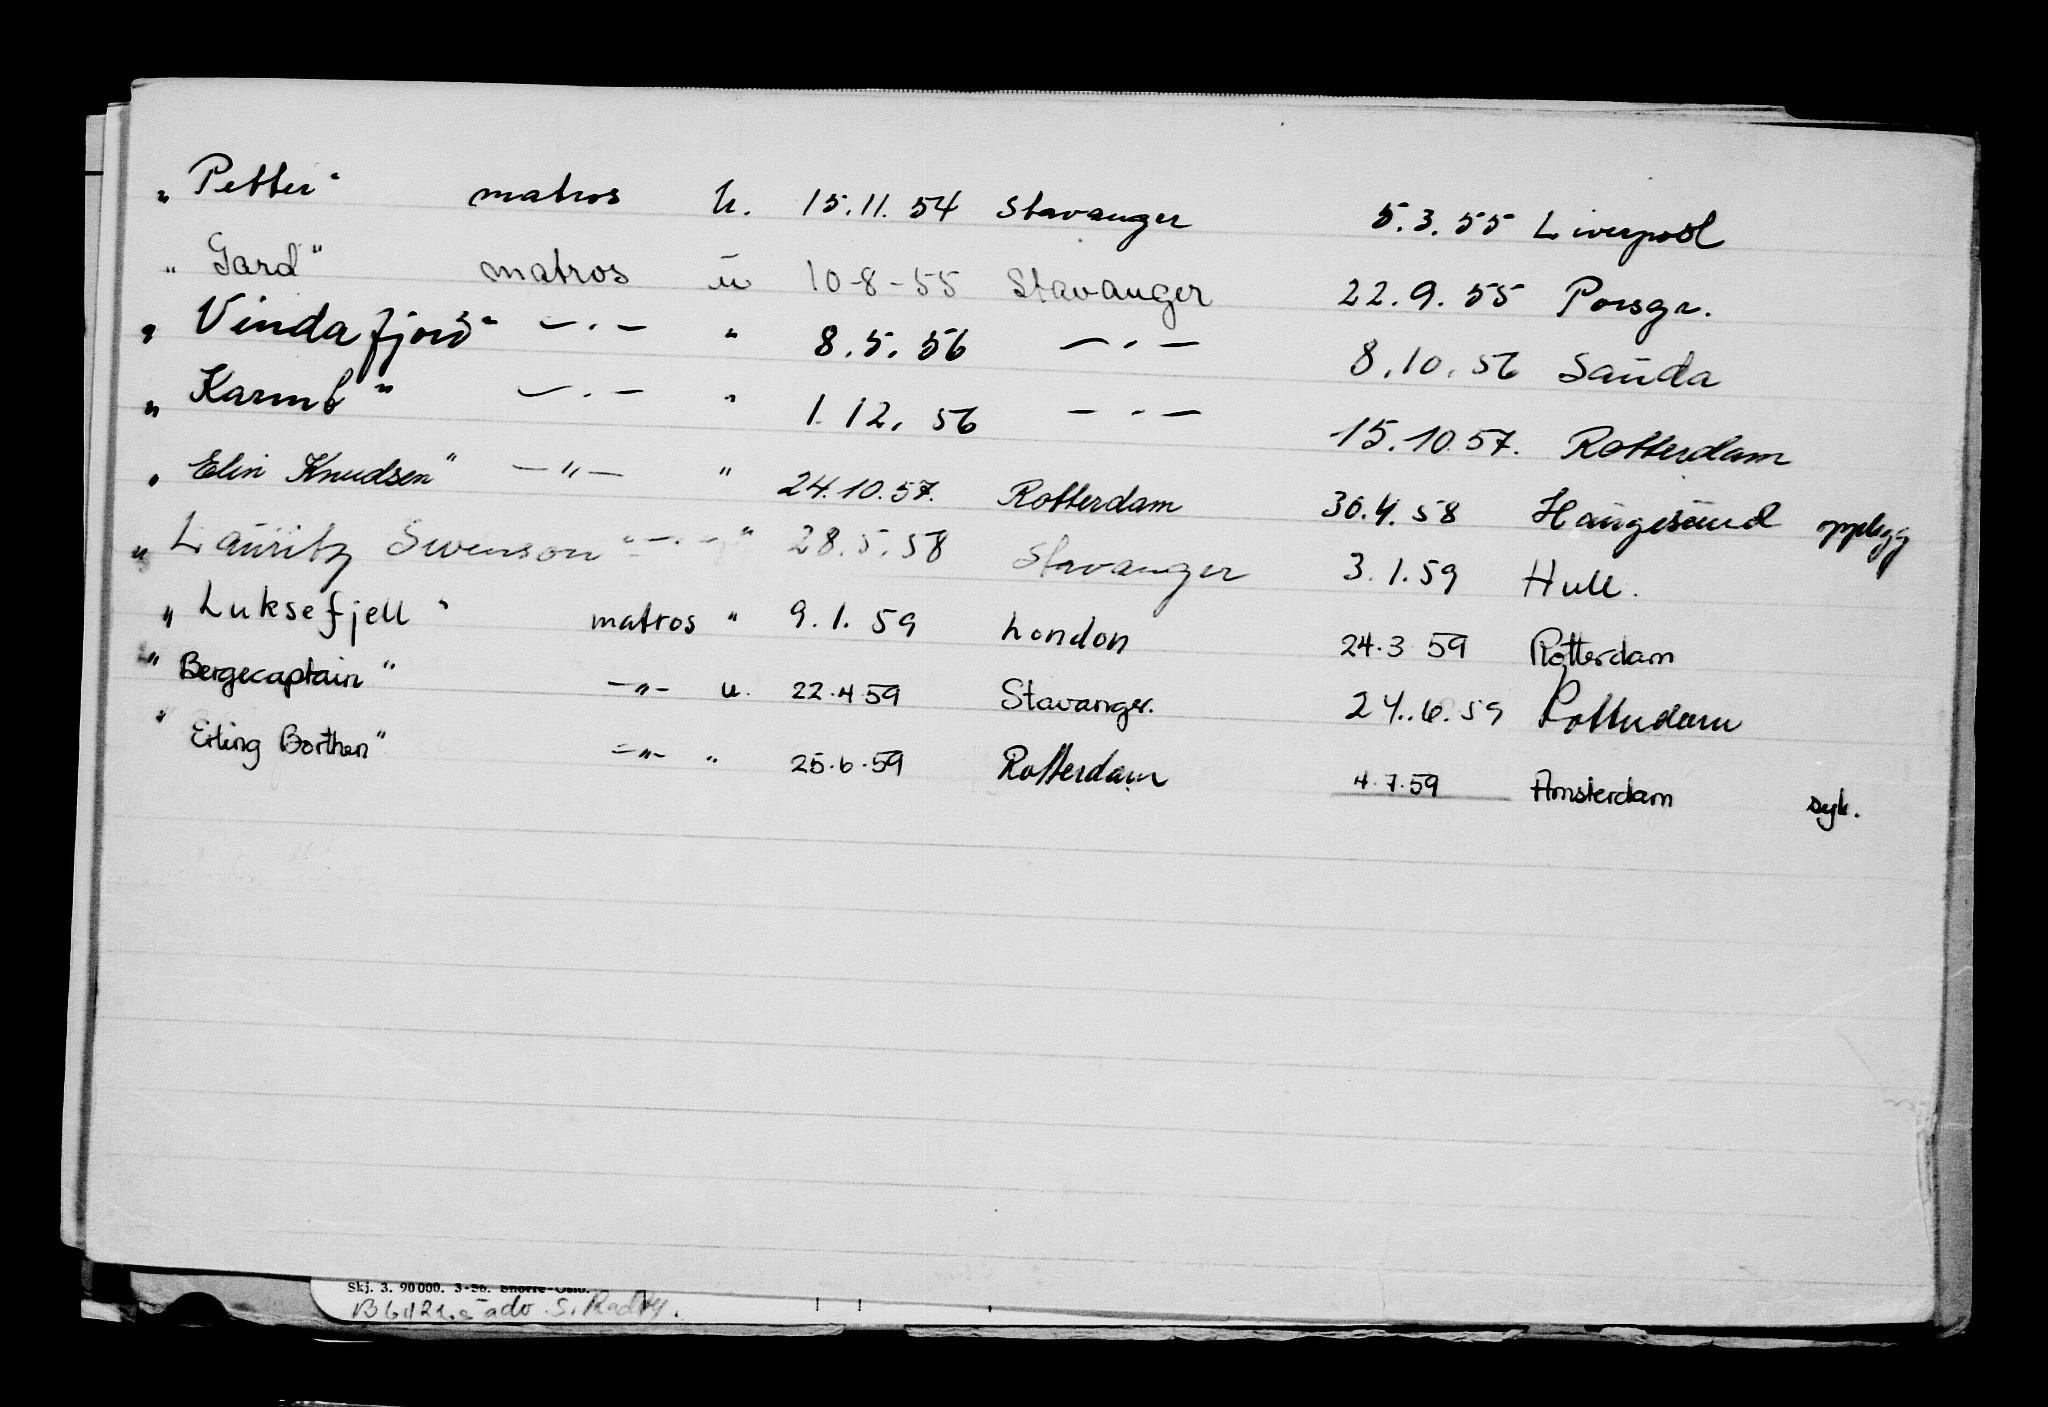 „ Petter“ matros u. 15.11.54 Stavanger 5.3.55 Liverpool
„ Gard“ matros u 10-8-55 Stavanger 22.9.55 Porsgr.
„ Vindafjord“ — . — " 8.5.56 — . — 8.10.56 Sauda
„ Karmt“ — . — " 1.12.56 — . — 15.10.57. Rotterdam
„ Elin Knudsen“ — " — " 24.10.57. Rotterdam 30.4.58 Haugesund opplegg
„ Lauritz Swenson“ — . — " 28.5.58 Stavanger 3.1.59 Hull.
„ Luksefjell“ matros " 9.1.59 London 24.3 59 Rotterdam
" Bergecaptain" — " — u. 22.4 59 Stavanger. 24.6.59 Rotterdam
" Erling Borthen" — " — " 25.6.59 Rotterdam 4.7.59 Amsterdam syk.
Skj. 3. 90 000. 3-56. Snorre-Oslo.